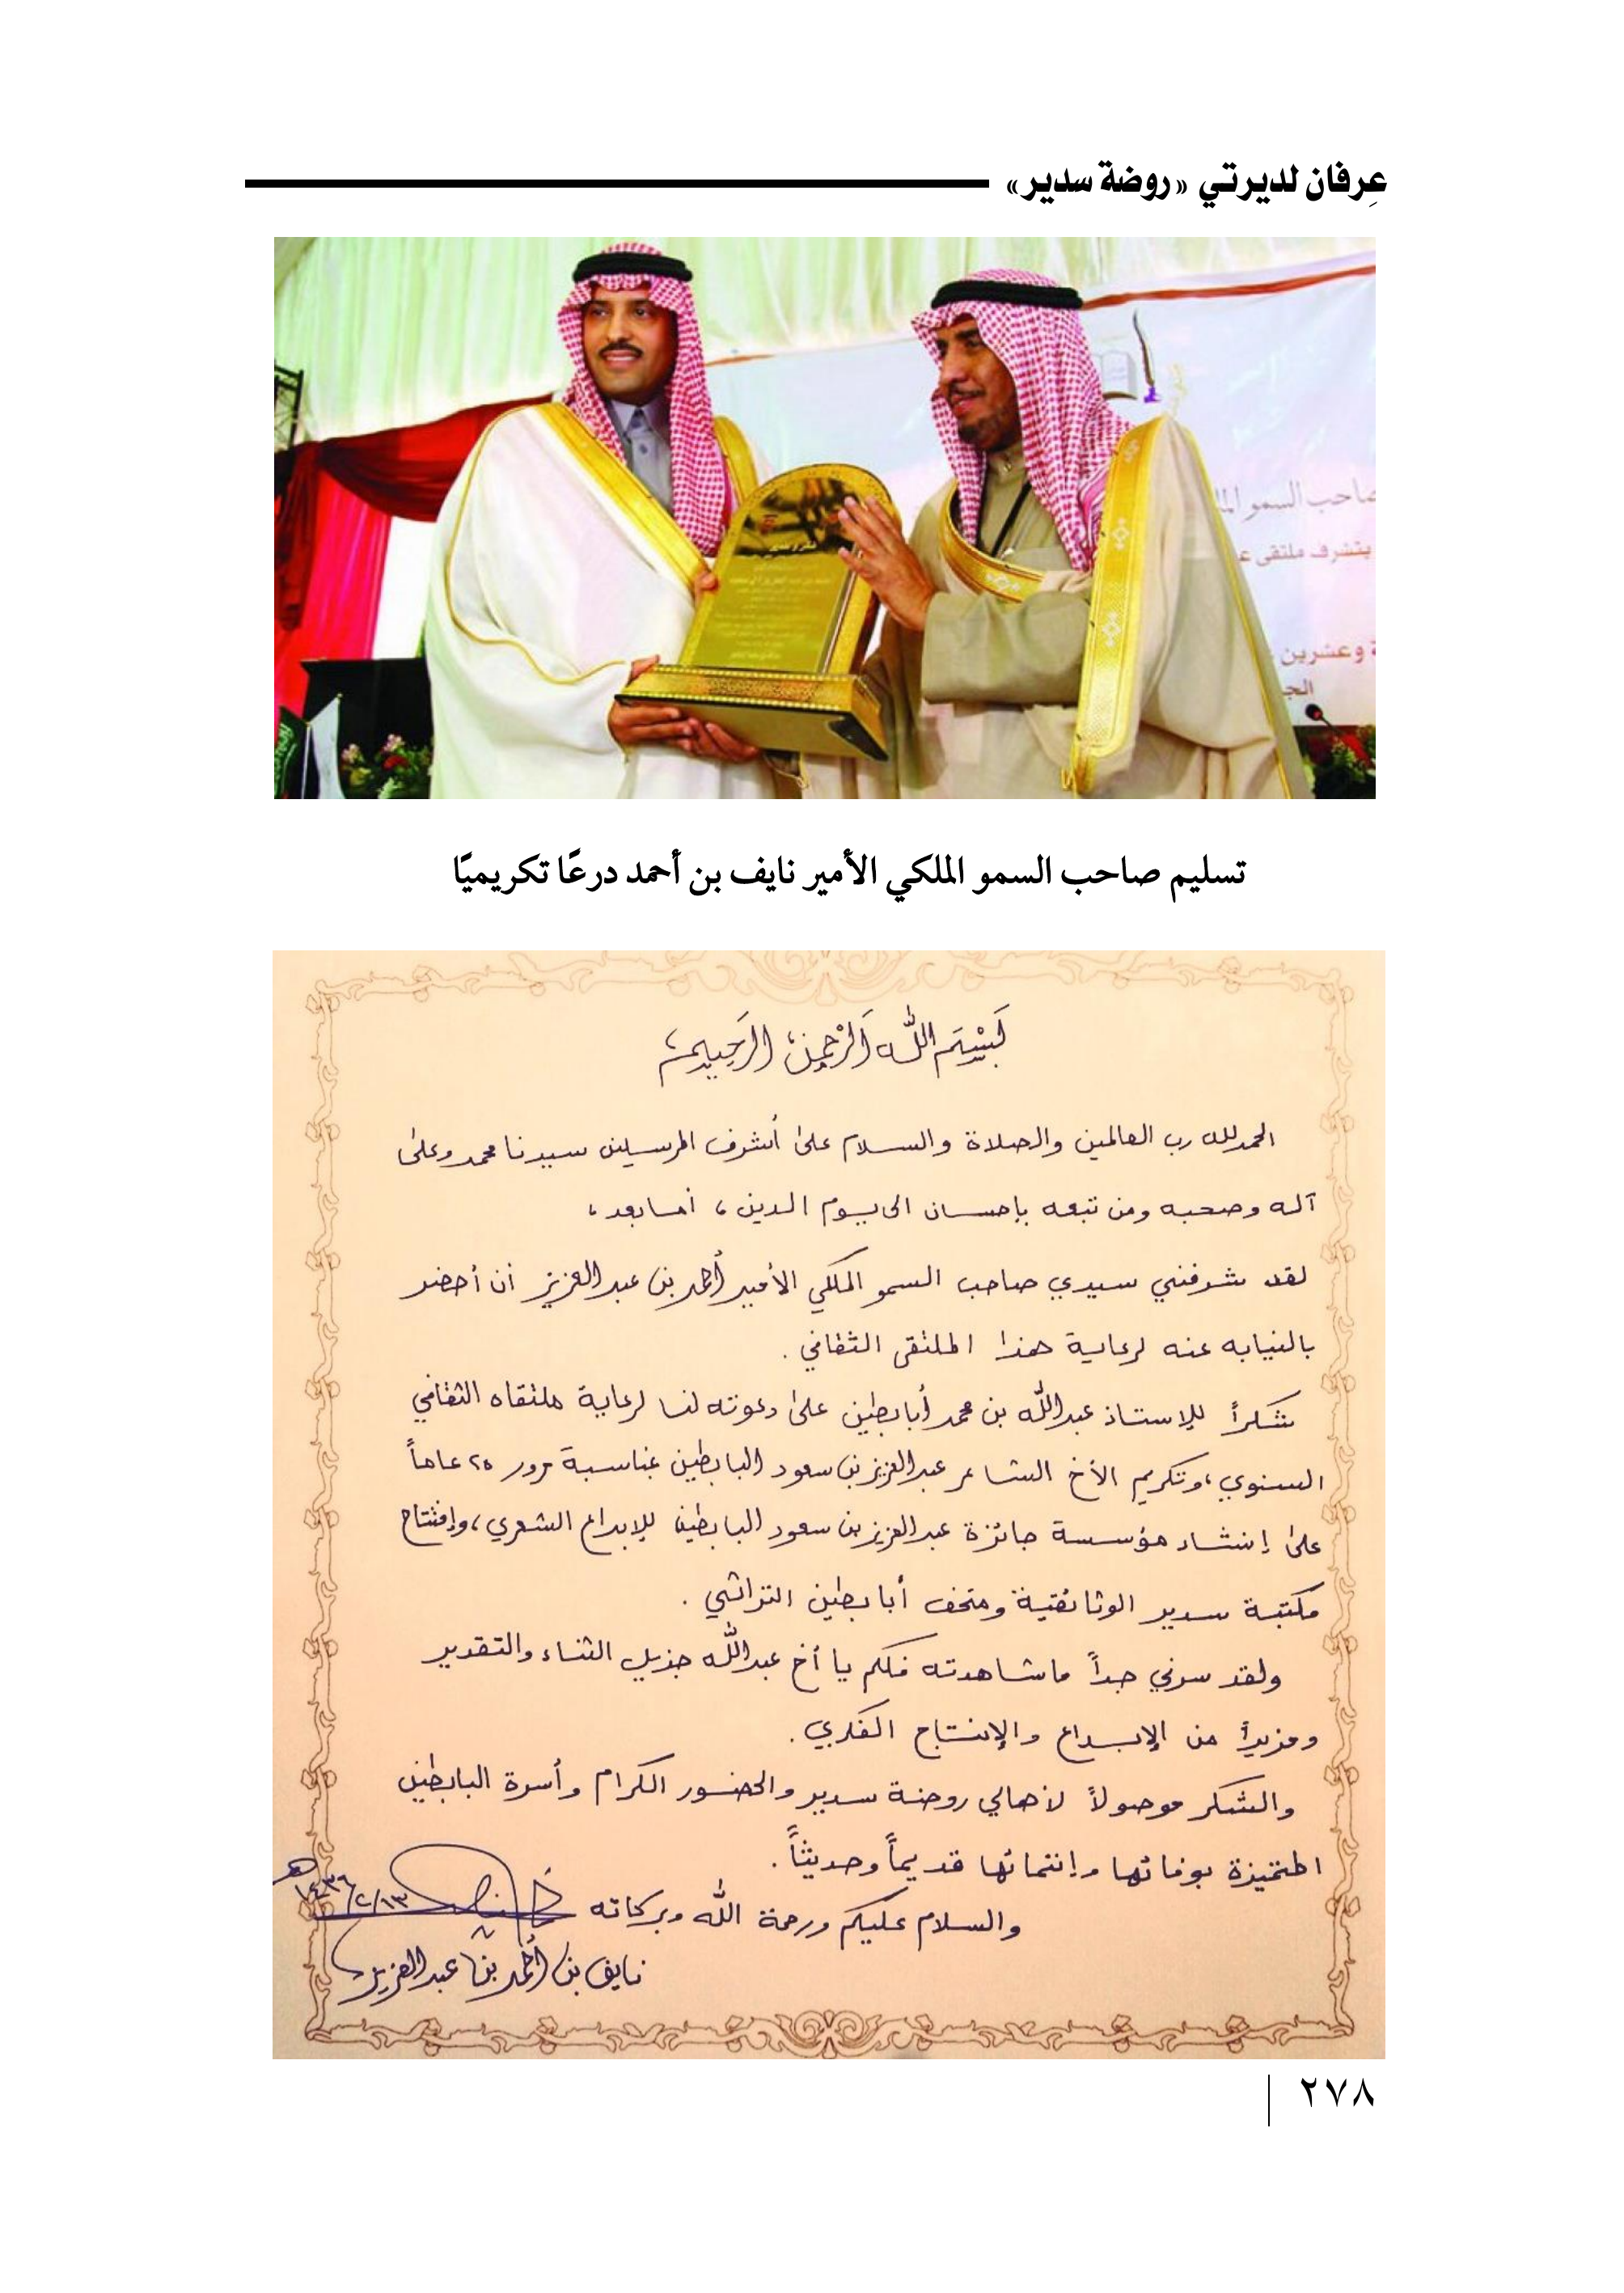 عِرفان لديرتي «روضة سدير»
صاحب السمو
يتشرف ملتقى
وعشرين
تسليم صاحب السمو الملكي الأمير نايف بن أحمد درعًا تكريميًا
بسم الله الرحمن الرحيم
الحمد لله رب العالمين والصلاة والسلام على أشرف المرسلين سيدنا محمد وعلى
آله وصحبه ومن تبعه بإحسان الى يوم الدين، أما بعد،
لقد شرفني سيدي صاحب السمو الملكي الأمير أحمد بن عبدالعزيز أن أحضر
بالنيابه عنه لرعاية هذا الملتقى الثقافي .
شكراً للإستاذ عبدالله بن محمد أبابطين على دعوته لنا لرعاية ملتقاه الثقافي
السنوي، وتكريم الأخ الشاعر عبدالعزيز بن سعود البابطين بمناسبة مرور ٢٥ عاماً
على إنشاء مؤسسة جائزة عبدالعزيز بن سعود البابطين للإبداع الشعري، وإفتتاح
مكتبة سدير الوثائقية ومتحف أبابطين التراثي .
ولقد سرني جداً ماشاهدته فلكم يا أخ عبدالله جزيل الثناء والتقدير
ومزيداً من الإبداع والإنتاج الفكري .
والشكر موصولاً لأهالي روضة سدير والحضور الكرام وأسرة البابطين
المتميزة بوفائها وإنتمائها قديماً وحديثاً .
والسلام عليكم ورحمة الله وبركاته
١٤٣٦/٢/١٣هـ
نايف بن أحمد بن عبدالعزيز
٢٧٨